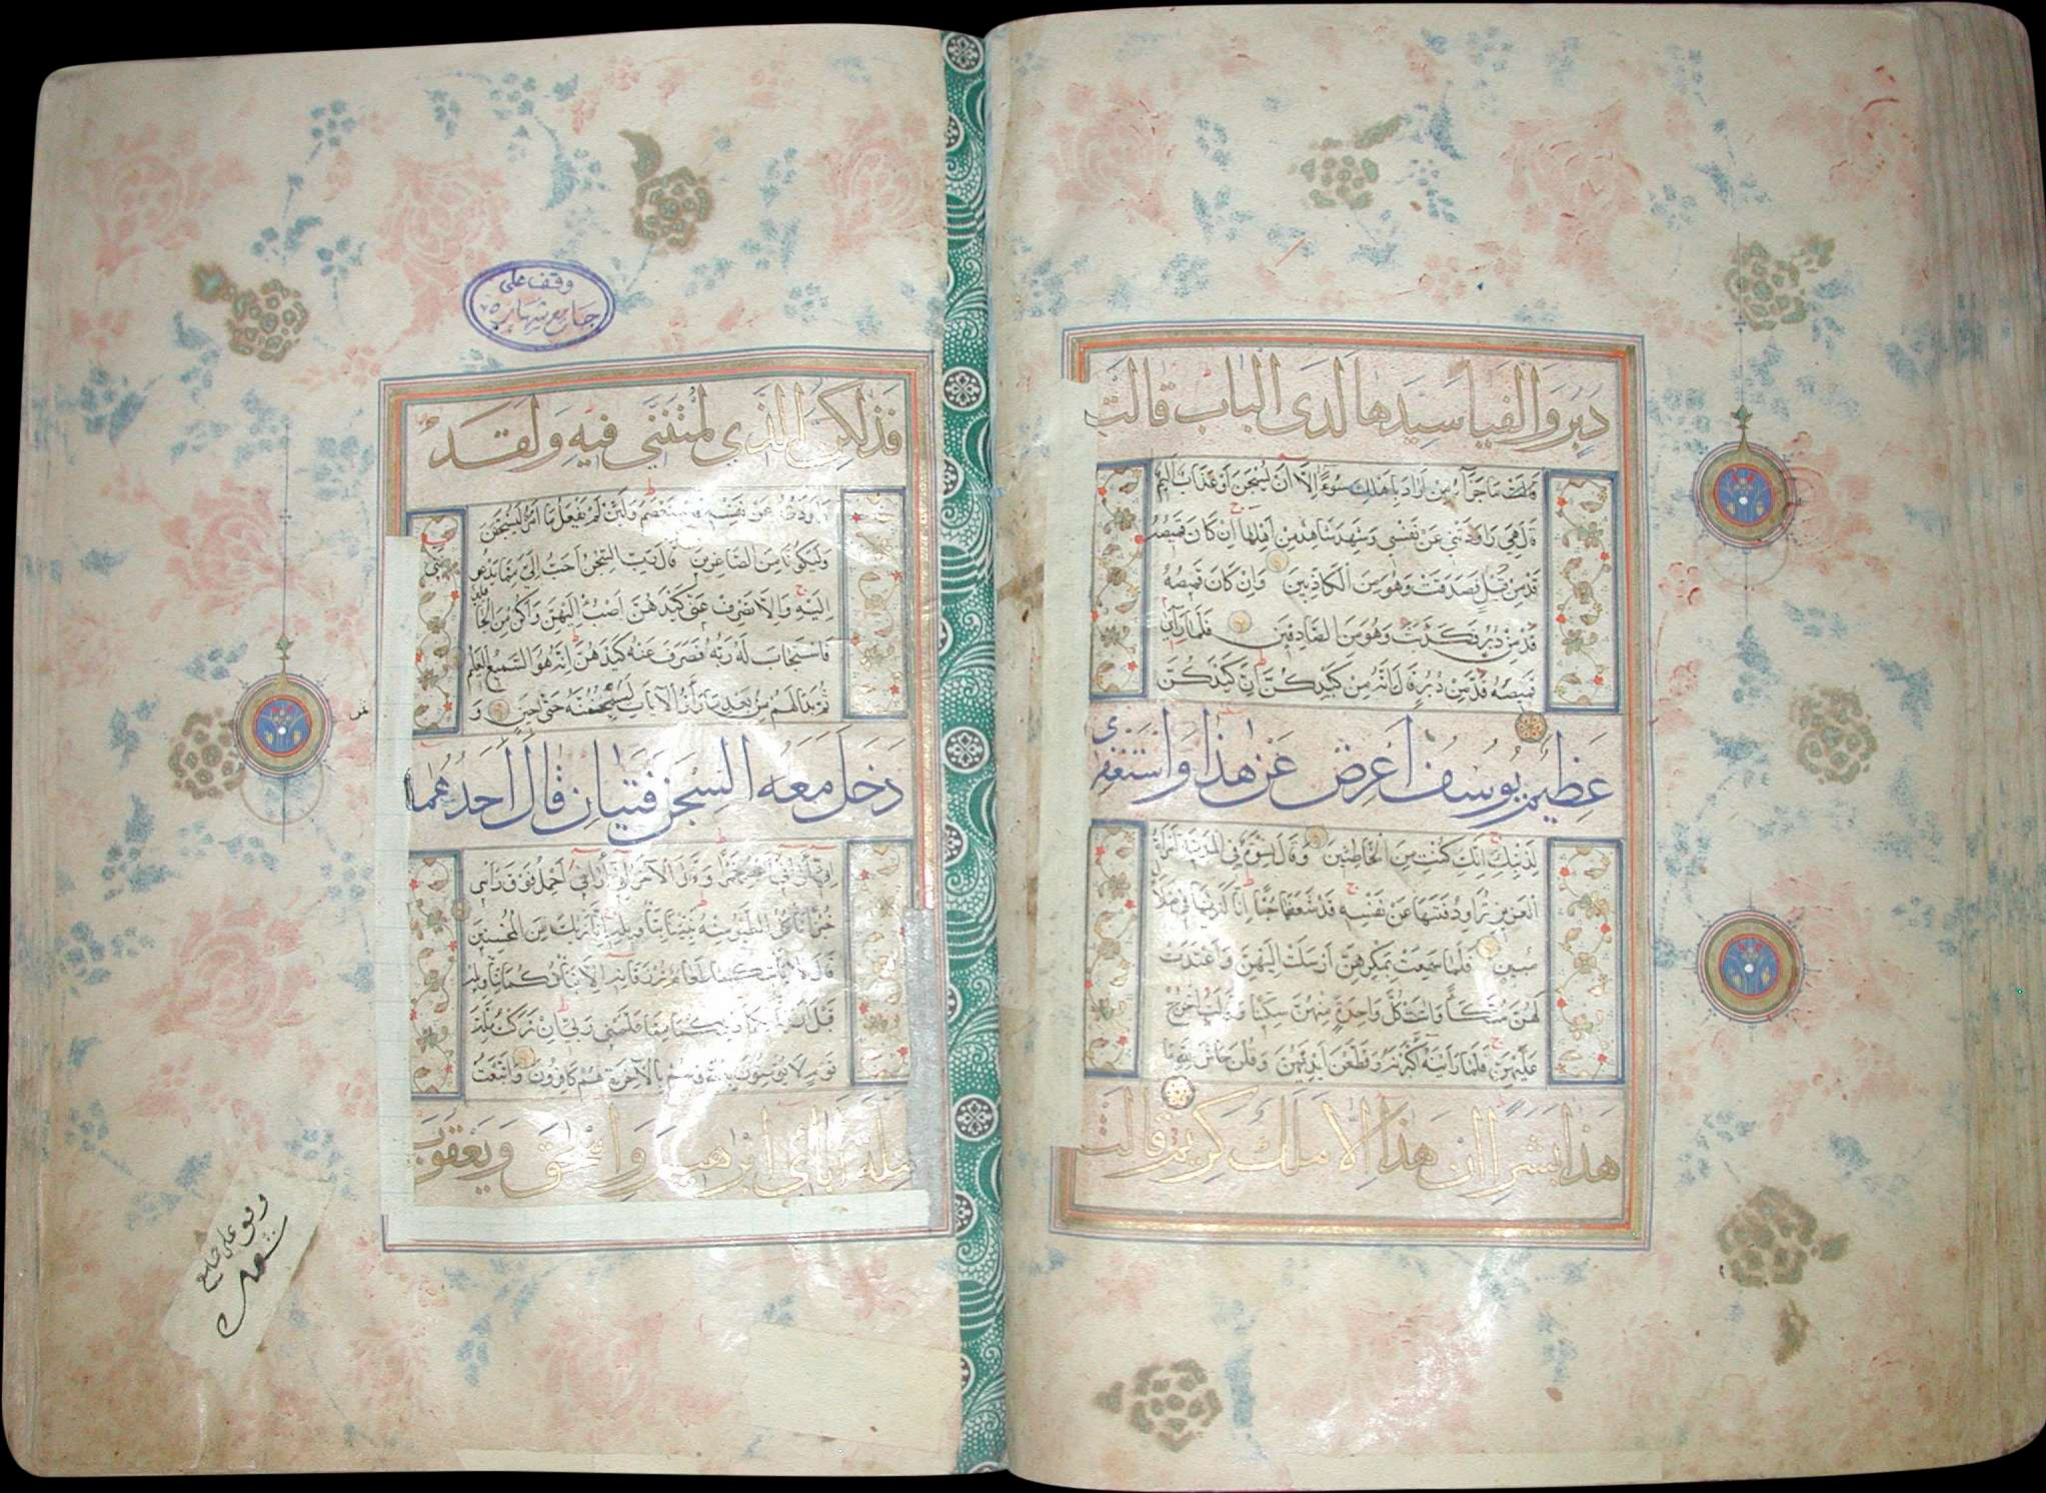 دبر والفيا سيدها لدى الباب قالت
ما جزآء من اراد باهلك سوءا الا ان يسجن او عذاب اليم
قال هي راودتني عن نفسي وشهد شاهد من اهلها ان كان قميصه
قد من قبل فصدقت وهو من الكاذبين وان كان قميصه
قد من دبر فكذبت وهو من الصادقين فلما راى
قميصه قد من دبر قال انه من كيدكن ان كيدكن
عظيم يوسف اعرض عن هذا واستغفرى
لذنبك انك كنت من الخاطئين وقال نسوة في المدينة امرأة
العزيز تراود فتيها عن نفسه قد شغفها حبا انا لنريها في ضلال
مبين فلما سمعت بمكرهن ارسلت اليهن واعتدت
لهن متكأ وآتت كل واحدة منهن سكينا وقالت اخرج
عليهن فلما راينه اكبرنه وقطعن ايديهن وقلن حاش لله ما
هذا بشرا ان هذا الا ملك كريم قالت
وقف على
جامع شهاره
فذلكن الذي لمتنني فيه ولقد
راودته عن نفسه فاستعصم ولئن لم يفعل ما آمره ليسجنن
وليكونا من الصاغرين قال رب السجن احب الي مما يدعونني
اليه والا تصرف عني كيدهن اصب اليهن واكن من الجا
هلين
فاستجاب له ربه فصرف عنه كيدهن انه هو السميع العليم
ثم بدا لهم من بعد ما راوا الآيات ليسجننه حتى حين و
دخل معه السجن فتيان قال احدهما
اني اراني اعصر خمرا وقال الآخر اني اراني احمل فوق راسي
خبزا تاكل الطير منه نبئنا بتاويله انا نريك من المحسنين
قال لا ياتيكما طعام ترزقانه الا نباتكما بتاويله
قبل ان ياتيكما ذلكما مما علمني ربي اني تركت ملة
قوم لا يؤمنون بالله وهم بالآخرة هم كافرون واتبعت
ملة آبائي ابرهيم واسحق ويعقوب
وقف على جامع
شهاره